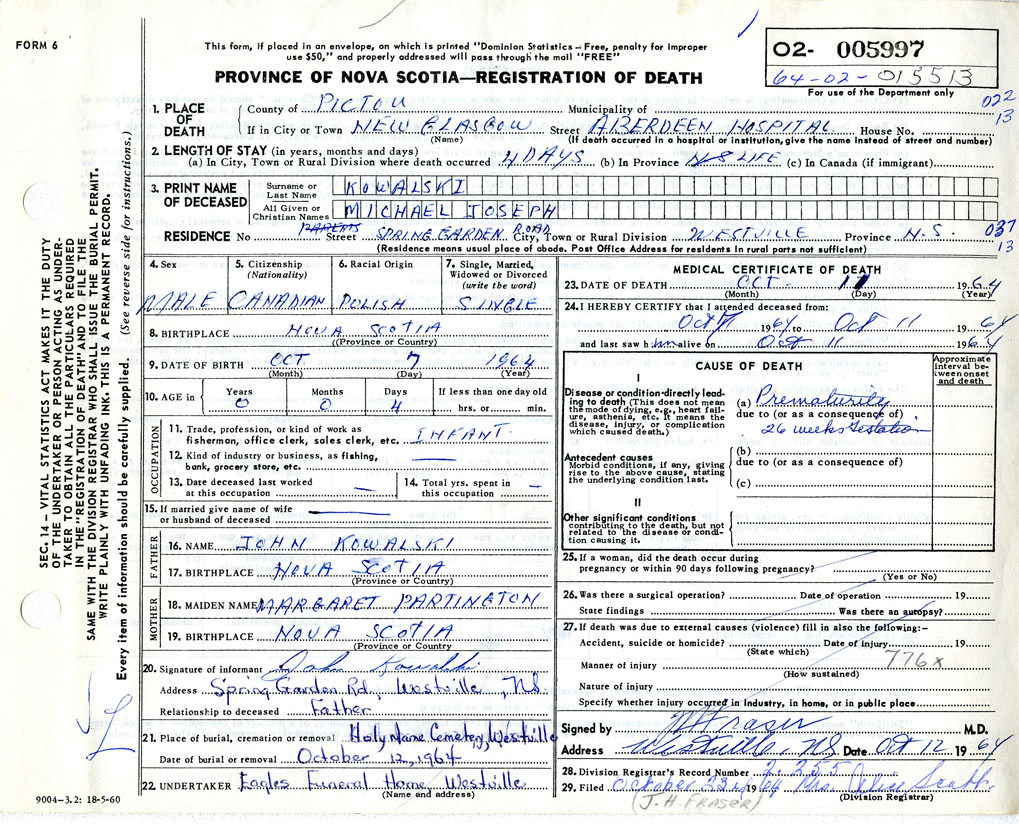 FORM 6
This form, if placed in an envelope, on which is printed "Dominion Statistics – Free, penalty for improper
use $50," and properly addressed will pass through the mail "FREE"
PROVINCE OF NOVA SCOTIA—REGISTRATION OF DEATH
02- 005997
64-02-015513
For use of the Department only
022
13
1. PLACE OF DEATH
County of PICTOU Municipality of
If in City or Town NEW GLASGOW Street ABERDEEN HOSPITAL House No.
(Name) (If death occurred in a hospital or institution, give the name instead of street and number)
2. LENGTH OF STAY (in years, months and days)
(a) In City, Town or Rural Division where death occurred 4 DAYS (b) In Province LIFE (c) In Canada (if immigrant)
3. PRINT NAME OF DECEASED
Surname or Last Name KOWALSKI
All Given or Christian Names MICHAEL JOSEPH
PARENTS
RESIDENCE No Street SPRING GARDEN ROAD City, Town or Rural Division WESTVILLE Province N.S.
037
13
(Residence means usual place of abode. Post Office Address for residents in rural parts not sufficient)
4. Sex
MALE
5. Citizenship (Nationality)
CANADIAN
6. Racial Origin
POLISH
7. Single, Married, Widowed or Divorced (write the word)
SINGLE
8. BIRTHPLACE NOVA SCOTIA
(Province or Country)
9. DATE OF BIRTH OCT 7 1964
(Month) (Day) (Year)
10. AGE in
Years 0 Months 0 Days 4 If less than one day old
hrs. or min.
OCCUPATION
11. Trade, profession, or kind of work as
fisherman, office clerk, sales clerk, etc. INFANT
12. Kind of industry or business, as fishing,
bank, grocery store, etc. —
13. Date deceased last worked
at this occupation —
14. Total yrs. spent in
this occupation —
15. If married give name of wife
or husband of deceased —
FATHER
16. NAME JOHN KOWALSKI
17. BIRTHPLACE NOVA SCOTIA
(Province or Country)
MOTHER
18. MAIDEN NAME MARGARET PARTINGTON
19. BIRTHPLACE NOVA SCOTIA
(Province or Country)
20. Signature of informant John Kowalski
Address Spring Garden Rd, Westville, N.S.
Relationship to deceased Father
21. Place of burial, cremation or removal Holy Name Cemetery, Westville
Date of burial or removal October 12, 1964
22. UNDERTAKER Eagles Funeral Home Westville
(Name and address)
9004–3.2: 18-5-60
SEC. 14 – VITAL STATISTICS ACT MAKES IT THE DUTY
OF THE UNDERTAKER OR PERSON ACTING AS UNDER-
TAKER TO OBTAIN ALL THE PARTICULARS REQUIRED
IN THE "REGISTRATION OF DEATH" AND TO FILE THE
SAME WITH THE DIVISION REGISTRAR WHO SHALL ISSUE THE BURIAL PERMIT.
WRITE PLAINLY WITH UNFADING INK. THIS IS A PERMANENT RECORD.
Every item of information should be carefully supplied. (See reverse side for instructions.)
MEDICAL CERTIFICATE OF DEATH
23. DATE OF DEATH OCT. 11 1964
(Month) (Day) (Year)
24. I HEREBY CERTIFY that I attended deceased from:
Oct 1964 to Oct 11 1964
and last saw him alive on Oct 11 1964
CAUSE OF DEATH
Approximate
interval be-
tween onset
and death
I
Disease or condition directly lead-
ing to death (This does not mean
the mode of dying, e.g., heart fail-
ure, asthenia, etc. It means the
disease, injury, or complication
which caused death.)
(a) Prematurity
due to (or as a consequence of)
26 weeks Gestation
Antecedent causes
Morbid conditions, if any, giving
rise to the above cause, stating
the underlying condition last.
(b)
due to (or as a consequence of)
(c)
II
Other significant conditions
contributing to the death, but not
related to the disease or condi-
tion causing it.
25. If a woman, did the death occur during
pregnancy or within 90 days following pregnancy?
(Yes or No)
26. Was there a surgical operation? Date of operation 19
State findings Was there an autopsy?
27. If death was due to external causes (violence) fill in also the following:–
Accident, suicide or homicide? Date of injury 19
(State which)
776x
Manner of injury
(How sustained)
Nature of injury
Specify whether injury occurred in industry, in home, or in public place
Signed by Fraser M.D.
Address Westville, NS Date Oct 12 1964
28. Division Registrar's Record Number 2.255
29. Filed October 23rd 1964 Mrs. Scott
(Division Registrar)
(J. H. FRASER)